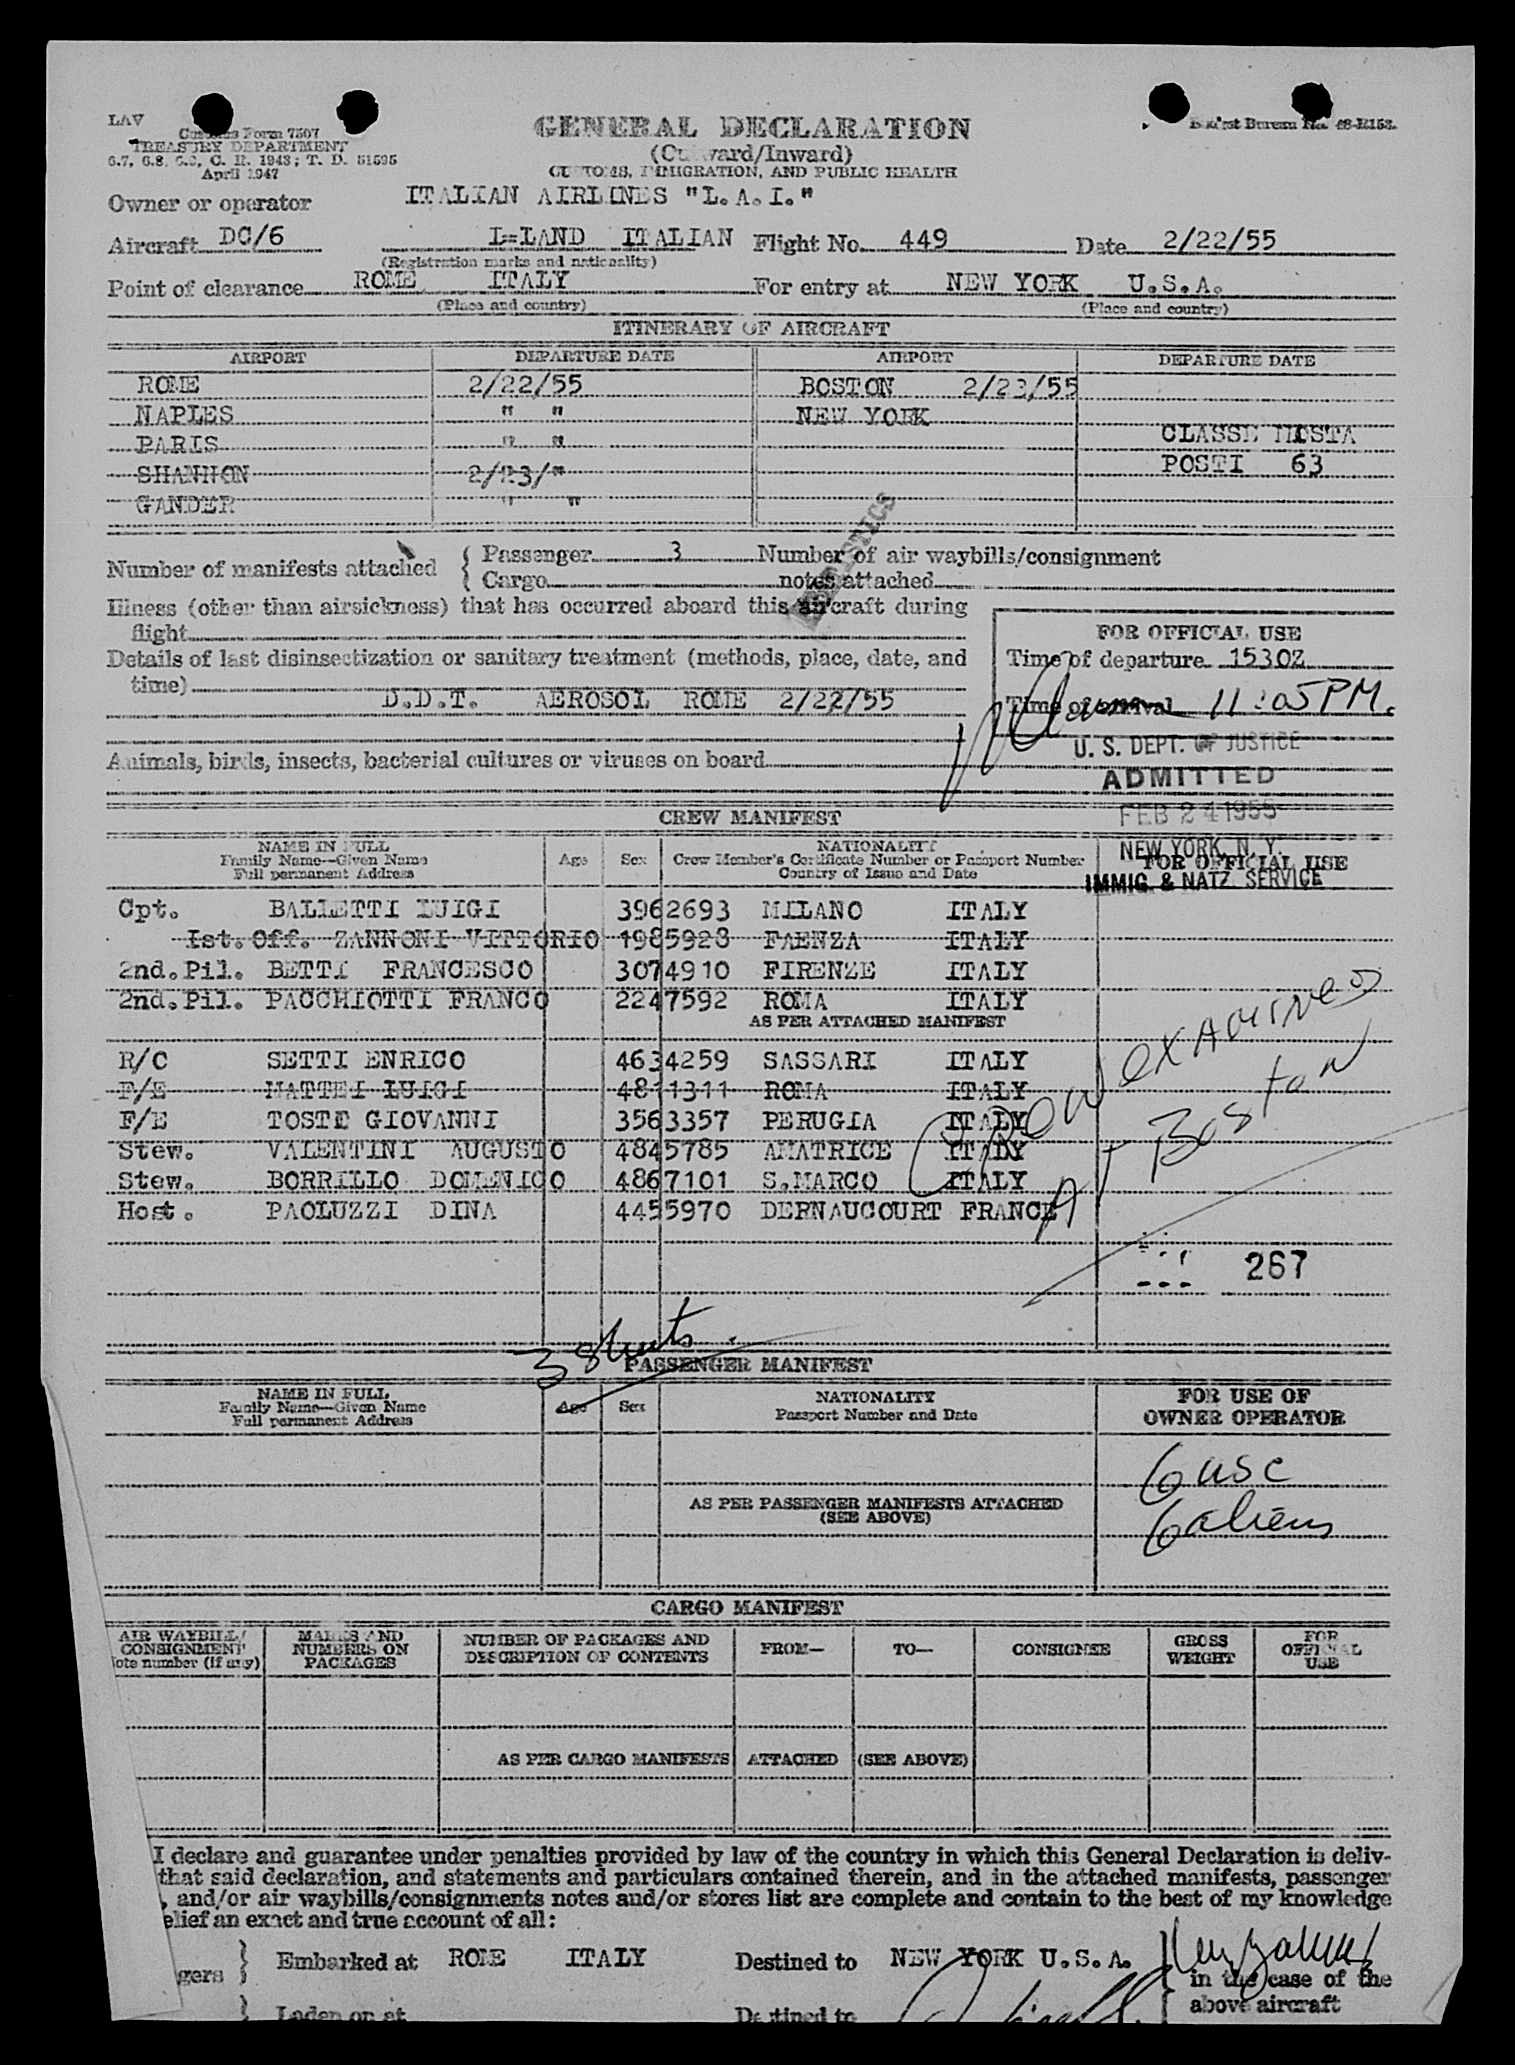 LAV
Customs Form 7507
TREASURY DEPARTMENT
6.7, 6.8, C. R. 1943; T. D. 51595
April 1947
GENERAL DECLARATION
(Outward/Inward)
CUSTOMS, IMMIGRATION, AND PUBLIC HEALTH
Budget Bureau No.
Owner or operator ITALIAN AIRLINES "L.A.I."
Aircraft DC/6 I=LAND ITALIAN Flight No. 449 Date 2/22/55
(Registration marks and nationality)
Point of clearance ROME ITALY For entry at NEW YORK U.S.A.
(Place and country) (Place and country)
ITINERARY OF AIRCRAFT
AIRPORT DEPARTURE DATE AIRPORT DEPARTURE DATE
ROME 2/22/55 BOSTON 2/23/55
NAPLES " " NEW YORK
PARIS " " CLASSE MISTA
SHANNON 2/23/" POSTI 63
GANDER " "
STATISTICS
Number of manifests attached { Passenger 3 Number of air waybills/consignment
{ Cargo notes attached
Illness (other than airsickness) that has occurred aboard this aircraft during
flight
Details of last disinsectization or sanitary treatment (methods, place, date, and
time)
D.D.T. AEROSOL ROME 2/22/55
Animals, birds, insects, bacterial cultures or viruses on board
FOR OFFICIAL USE
Time of departure 1530Z
Time of arrival 11:05PM.
U. S. DEPT. OF JUSTICE
ADMITTED
FEB 24 1955
NEW YORK, N. Y.
IMMIG. & NATZ. SERVICE
CREW MANIFEST
NAME IN FULL Age Sex NATIONALITY FOR OFFICIAL USE
Family Name—Given Name Crew Member's Certificate Number or Passport Number
Full permanent Address Country of Issue and Date
Cpt. BALLETTI LUIGI 3962693 MILANO ITALY
Ist.Off. ZANNONI VITTORIO 1985928 FAENZA ITALY
2nd.Pil. BETTI FRANCESCO 3074910 FIRENZE ITALY
2nd.Pil. PACCHIOTTI FRANCO 2247592 ROMA ITALY
AS PER ATTACHED MANIFEST
R/C SETTI ENRICO 4634259 SASSARI ITALY
F/E MATTEI LUIGI 4811311 ROMA ITALY
F/E TOSTE GIOVANNI 3563357 PERUGIA ITALY
Stew. VALENTINI AUGUSTO 4845785 AMATRICE ITALY
Stew. BORRILLO DOMENICO 4867101 S.MARCO ITALY
Host. PAOLUZZI DINA 4455970 DERNAUCOURT FRANCE
Crew examined
At Boston
267
3 sheets
PASSENGER MANIFEST
NAME IN FULL Age Sex NATIONALITY FOR USE OF
Family Name—Given Name Passport Number and Date OWNER OPERATOR
Full permanent Address
6 usc
AS PER PASSENGER MANIFESTS ATTACHED
(SEE ABOVE)
6 aliens
CARGO MANIFEST
AIR WAYBILL/ MARKS AND NUMBER OF PACKAGES AND FROM— TO— CONSIGNEE GROSS FOR
CONSIGNMENT NUMBERS ON DESCRIPTION OF CONTENTS WEIGHT OFFICIAL
ote number (if any) PACKAGES USE
AS PER CARGO MANIFESTS ATTACHED (SEE ABOVE)
I declare and guarantee under penalties provided by law of the country in which this General Declaration is deliv-
that said declaration, and statements and particulars contained therein, and in the attached manifests, passenger
, and/or air waybills/consignments notes and/or stores list are complete and contain to the best of my knowledge
elief an exact and true account of all:
gers } Embarked at ROME ITALY Destined to NEW YORK U.S.A. } in the case of the
above aircraft
} Laden on at Destined to